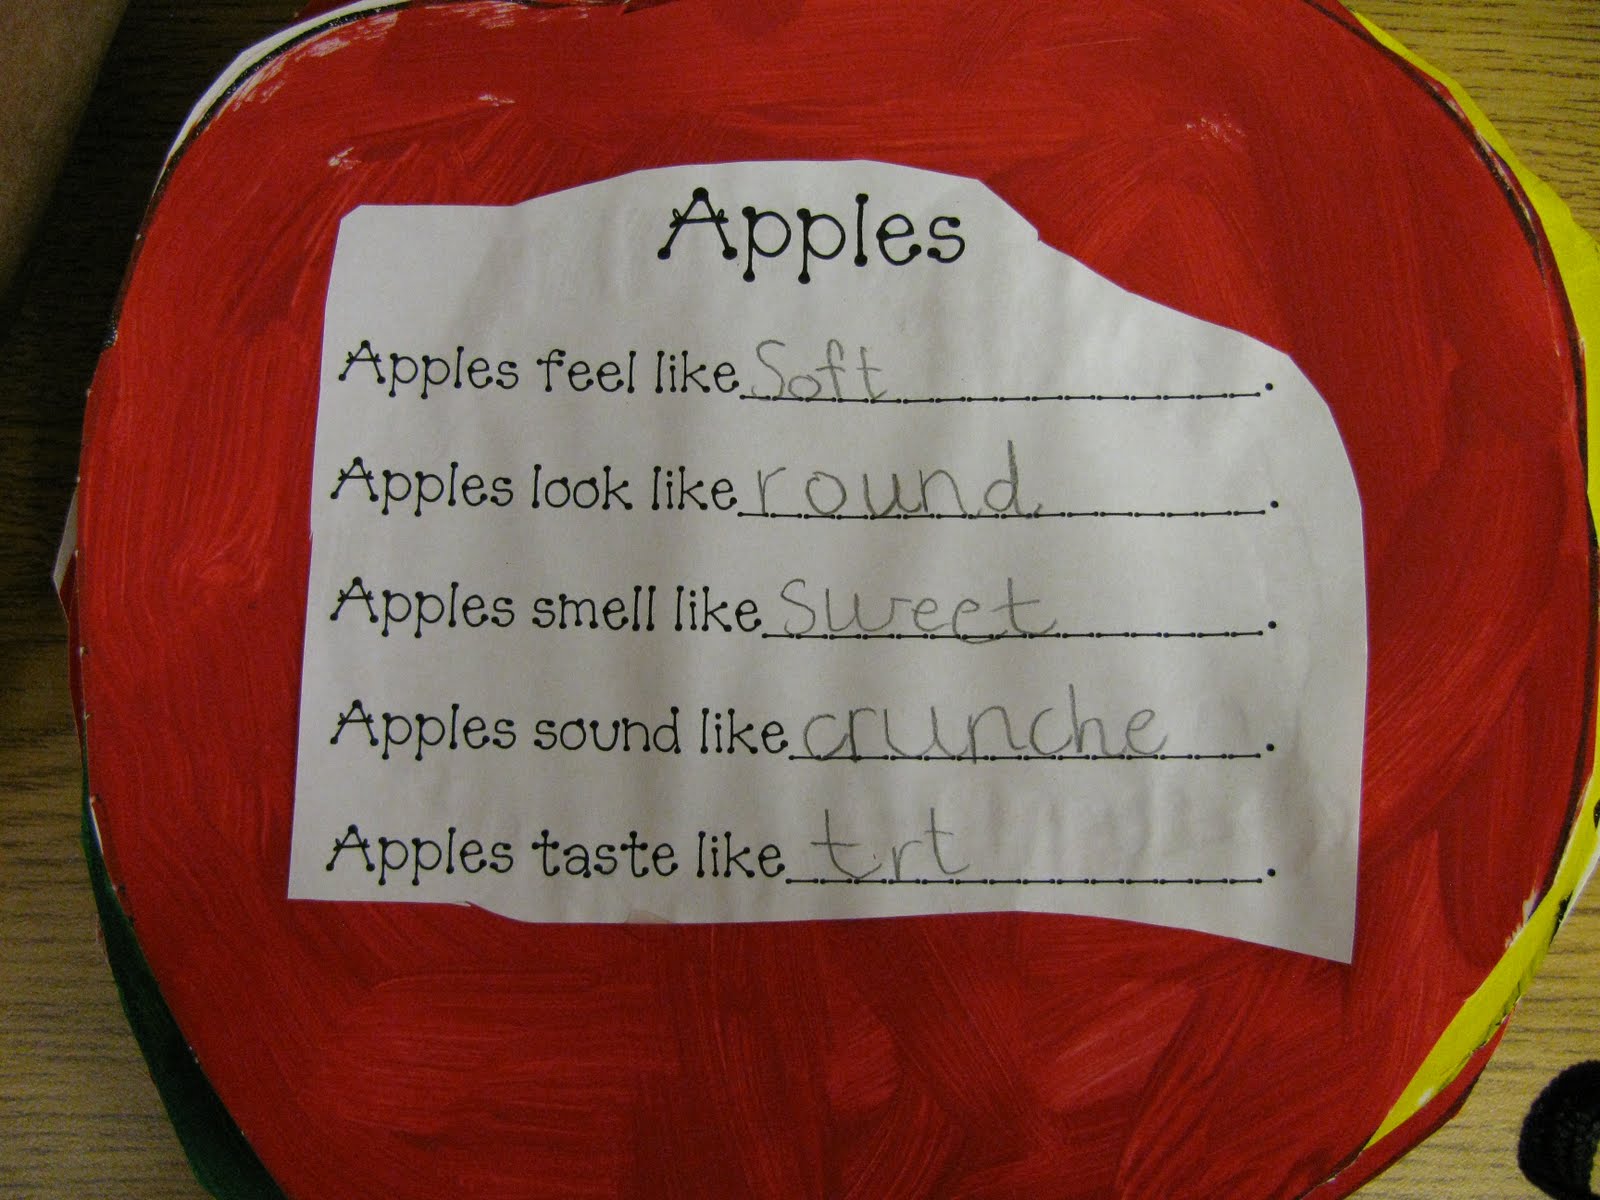 Apples
Apples feel like Soft.
Apples look like round.
Apples smell like Sweet.
Apples sound like crunche.
Apples taste like trt.